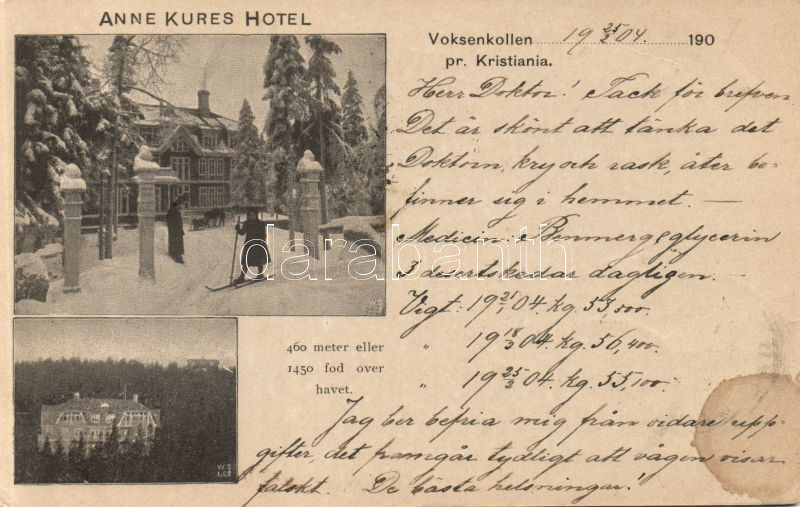 ANNE KURES HOTEL
Voksenkollen 19 25/2 04. 190
pr. Kristiania.
Herr Doktor! Tack för brefven.
Det är skönt att tänka det
Doktorn, kry och rask, åter be-
finner sig i hemmet. —
Medicin: glycerin
3 desertskedar dagligen. —
Vigt: 19 21/1 04. kg. 53,500.
„ 19 18/2 04. kg. 56,400.
„ 19 25/2 04. kg. 55,100.
460 meter eller
1450 fod over
havet.
Jag ber befria mig från vidare upp-
gifter, det framgår tydligt att vågen visar
falskt. De bästa helsningar!
darabanth